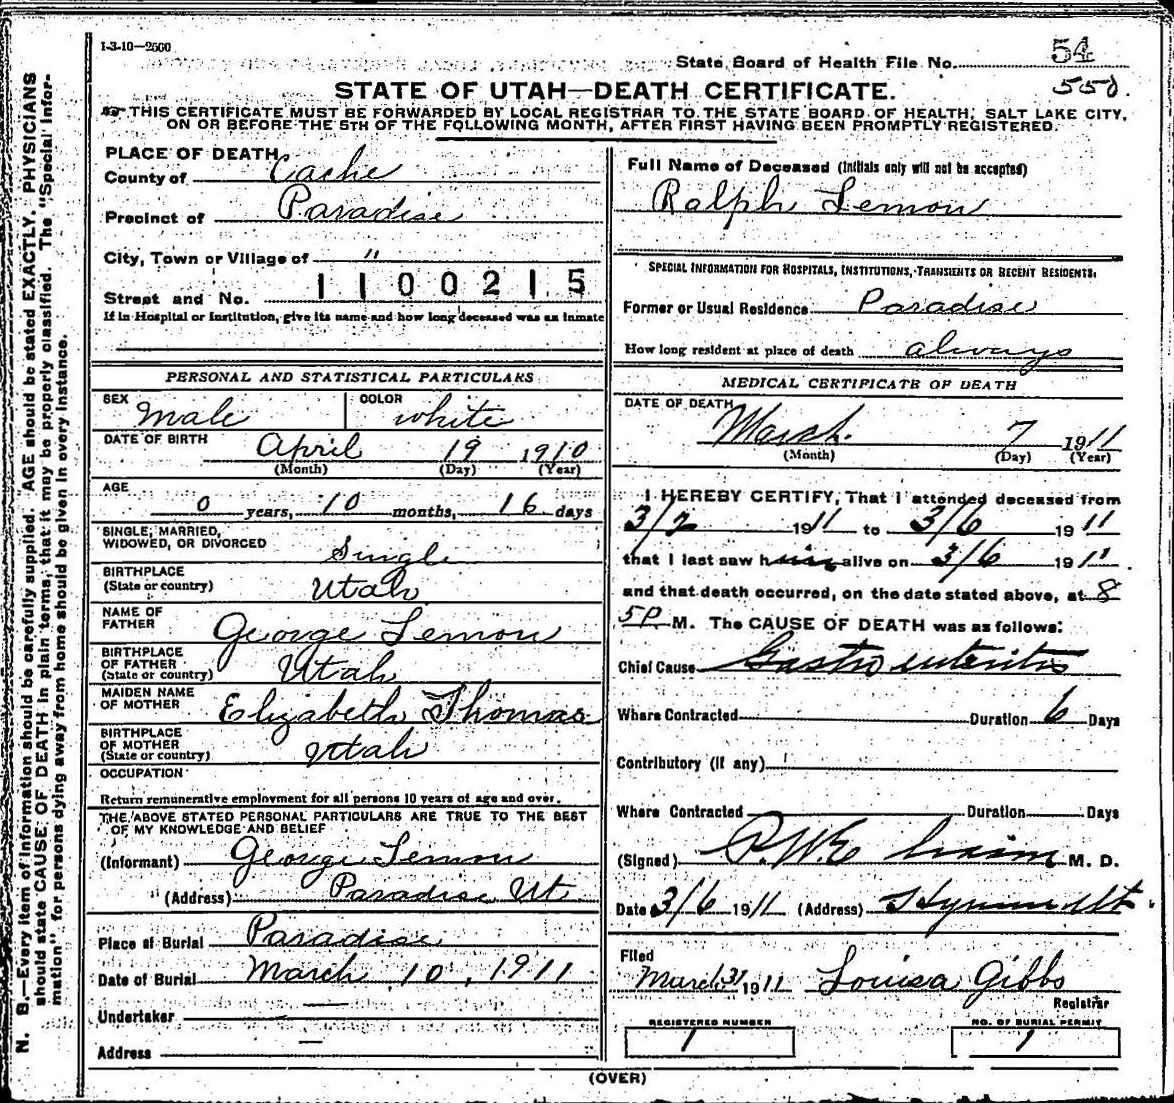 1-3-10—2500
State Board of Health File No. 54
550.
STATE OF UTAH—DEATH CERTIFICATE.
THIS CERTIFICATE MUST BE FORWARDED BY LOCAL REGISTRAR TO THE STATE BOARD OF HEALTH, SALT LAKE CITY,
ON OR BEFORE THE 5TH OF THE FOLLOWING MONTH, AFTER FIRST HAVING BEEN PROMPTLY REGISTERED.
N. B.—Every item of information should be carefully supplied. AGE should be stated EXACTLY. PHYSICIANS
should state CAUSE OF DEATH in plain terms, that it may be properly classified. The "Special Infor-
mation" for persons dying away from home should be given in every instance.
PLACE OF DEATH
County of Cache
Precinct of Paradise
City, Town or Village of "
Street and No. 1100215
If in Hospital or Institution, give its name and how long deceased was an inmate
PERSONAL AND STATISTICAL PARTICULARS
SEX Male COLOR white
DATE OF BIRTH April 19 1910
(Month) (Day) (Year)
AGE
0 years, 10 months, 16 days
SINGLE, MARRIED,
WIDOWED, OR DIVORCED Single
BIRTHPLACE
(State or country) Utah
NAME OF
FATHER George Lemon
BIRTHPLACE
OF FATHER
(State or country) Utah
MAIDEN NAME
OF MOTHER Elizabeth Thomas
BIRTHPLACE
OF MOTHER
(State or country) Utah
OCCUPATION
Return remunerative employment for all persons 10 years of age and over.
THE ABOVE STATED PERSONAL PARTICULARS ARE TRUE TO THE BEST
OF MY KNOWLEDGE AND BELIEF
(Informant) George Lemon
(Address) Paradise Ut
Place of Burial Paradise
Date of Burial March 10, 1911
Undertaker —
Address —
Full Name of Deceased (Initials only will not be accepted)
Ralph Lemon
SPECIAL INFORMATION FOR HOSPITALS, INSTITUTIONS, TRANSIENTS OR RECENT RESIDENTS.
Former or Usual Residence Paradise
How long resident at place of death always
MEDICAL CERTIFICATE OF DEATH
DATE OF DEATH
March 7 1911
(Month) (Day) (Year)
I HEREBY CERTIFY, That I attended deceased from
3/2 1911 to 3/6 1911
that I last saw him alive on 3/6 1911
and that death occurred, on the date stated above, at 8
5P M. The CAUSE OF DEATH was as follows:
Chief Cause Gastro enteritis
Where Contracted Duration 6 Days
Contributory (if any)
Where Contracted Duration Days
(Signed) M. D.
Date 3/6 1911 (Address) Hyrum Ut.
Filed
March 31 1911 Louisa Gibbs
Registrar
REGISTERED NUMBER
1
NO. OF BURIAL PERMIT
1
(OVER)